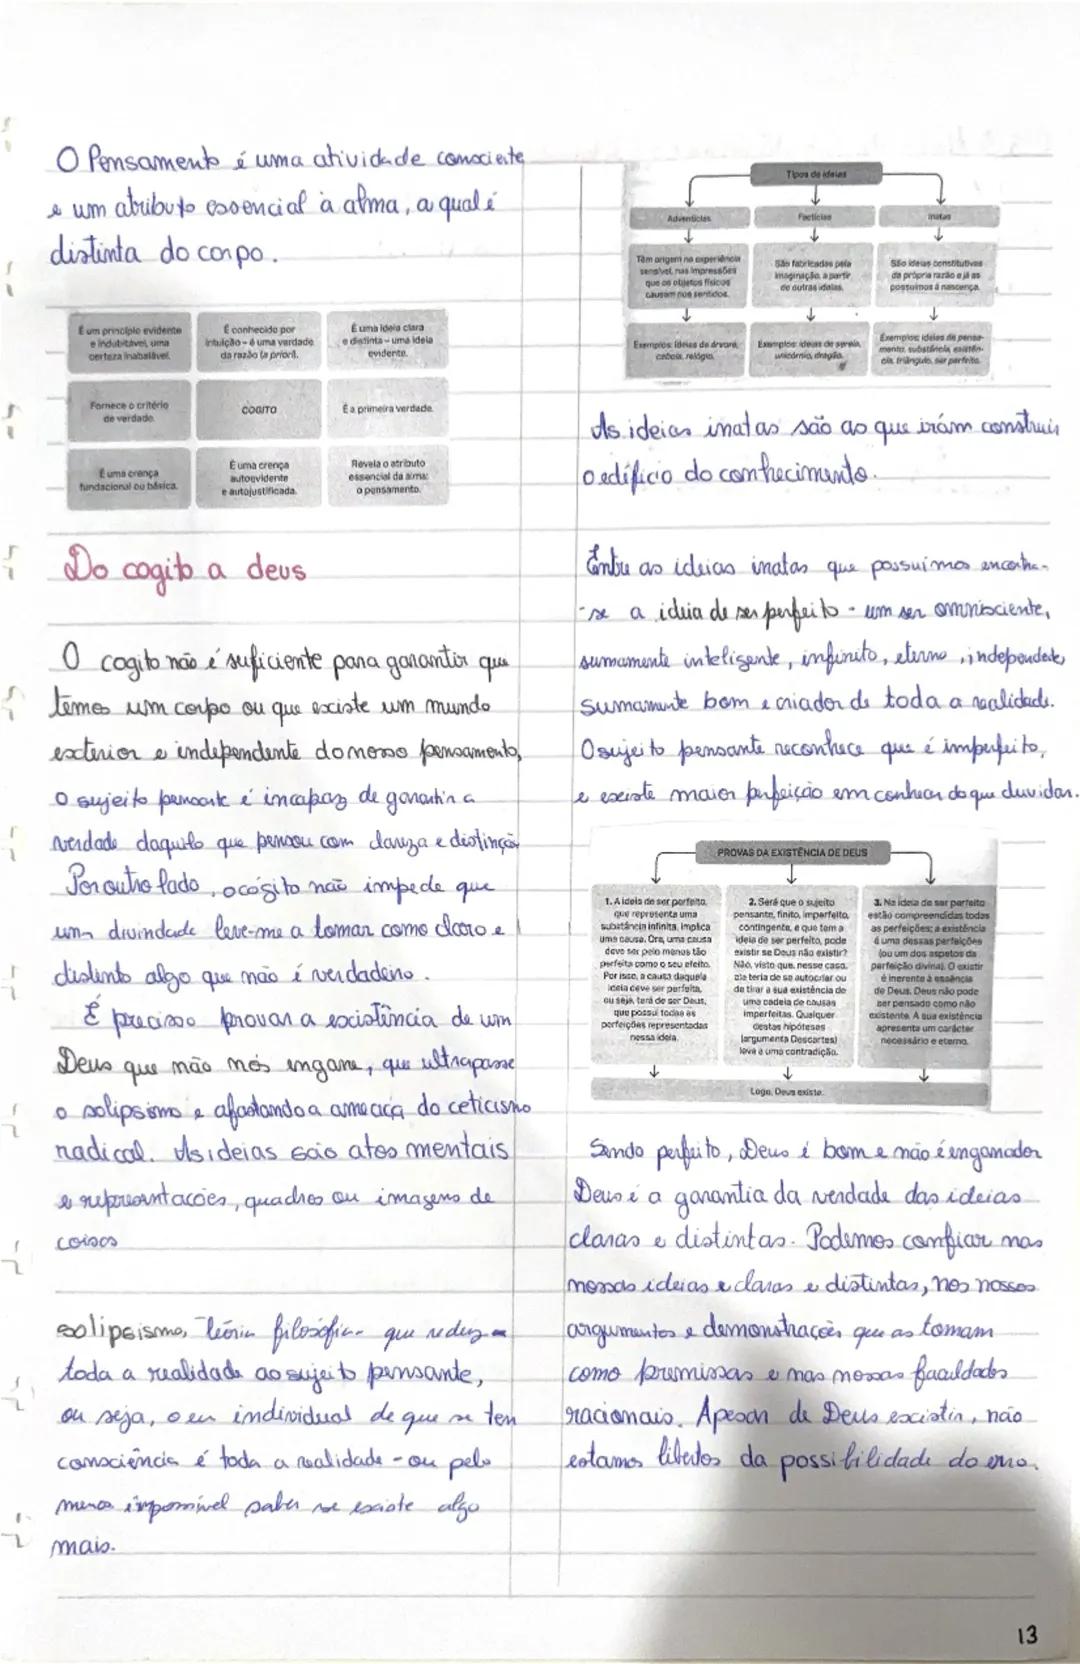 O Pensamento é uma atividade consciente
e um atributo essencial à alma, a qual é
distinta do corpo.
É um princípio evidente
e indubitável, uma
certeza inabalável.
É conhecido por
intuição - é uma verdade
da razão (a priori).
É uma ideia clara
e distinta - uma ideia
evidente.
Fornece o critério
de verdade.
COGITO
É a primeira verdade.
É uma crença
fundacional ou básica.
É uma crença
autoevidente
e autojustificada.
Revela o atributo
essencial da alma:
o pensamento.
Do cogito a deus
O cogito não é suficiente para garantir que
temos um corpo ou que existe um mundo
exterior e independente do nosso pensamento,
o sujeito pensante é incapaz de garantir a
verdade daquilo que pensou com clareza e distinção
Por outro lado, o cogito não impede que
uma divindade leve-me a tomar como claro e
distinto algo que não é verdadeiro.
É preciso provar a existência de um
Deus que não nos engane, que ultrapasse
o solipsismo e afastando a ameaça do ceticismo
radical. As ideias são atos mentais
e representações, quadros ou imagens de
coisas
solipsismo, teoria filosófica que reduz
toda a realidade ao sujeito pensante,
ou seja, o eu individual de que se tem
consciência é toda a realidade - ou pelo
menos impossível saber se existe algo
mais.
Tipos de ideias
Adventícias
Factícias
Inatas
Têm origem na experiência
sensível, nas impressões
que os objetos físicos
causam nos sentidos.
São fabricadas pela
imaginação, a partir
de outras ideias.
São ideias constitutivas
da própria razão e já as
possuímos à nascença.
Exemplos: ideias de árvore,
cebola, relógio.
Exemplos: ideias de sereia,
unicórnio, dragão.
Exemplos: ideias de pensa-
mento, substância, existên-
cia, triângulo, ser perfeito.
As ideias inatas são as que irám construir
o edifício do conhecimento.
Entre as ideias inatas que possuimos encontra-
-se a ideia de ser perfeito - um ser omnisciente,
sumamente inteligente, infinito, eterno, independente,
sumamente bom e criador de toda a realidade.
O sujeito pensante reconhece que é imperfeito,
e existe maior perfeição em conhecer do que duvidar.
PROVAS DA EXISTÊNCIA DE DEUS
1. A ideia de ser perfeito,
que representa uma
substância infinita, implica
uma causa. Ora, uma causa
deve ser pelo menos tão
perfeita como o seu efeito.
Por isso, a causa daquela
ideia deve ser perfeita,
ou seja, terá de ser Deus,
que possui todas as
perfeições representadas
nessa ideia.
2. Será que o sujeito
pensante, finito, imperfeito,
contingente, e que tem a
ideia de ser perfeito, pode
existir se Deus não existir?
Não, visto que, nesse caso,
ele teria de se autocriar ou
de tirar a sua existência de
uma cadeia de causas
imperfeitas. Qualquer
destas hipóteses
(argumenta Descartes)
leva a uma contradição.
3. Na ideia de ser perfeito
estão compreendidas todas
as perfeições; a existência
é uma dessas perfeições
(ou um dos aspetos da
perfeição divina). O existir
é inerente à essência
de Deus. Deus não pode
ser pensado como não
existente. A sua existência
apresenta um carácter
necessário e eterno.
Logo, Deus existe.
Sendo perfeito, Deus é bom e não é enganador
Deus é a garantia da verdade das ideias
claras e distintas. Podemos confiar nas
nossas ideias e claras e distintas, nos nossos
argumentos e demonstrações que as tomam
como premissas e nas nossas faculdades
racionais. Apesar de Deus existir, não
estamos libertos da possibilidade do erro.
13